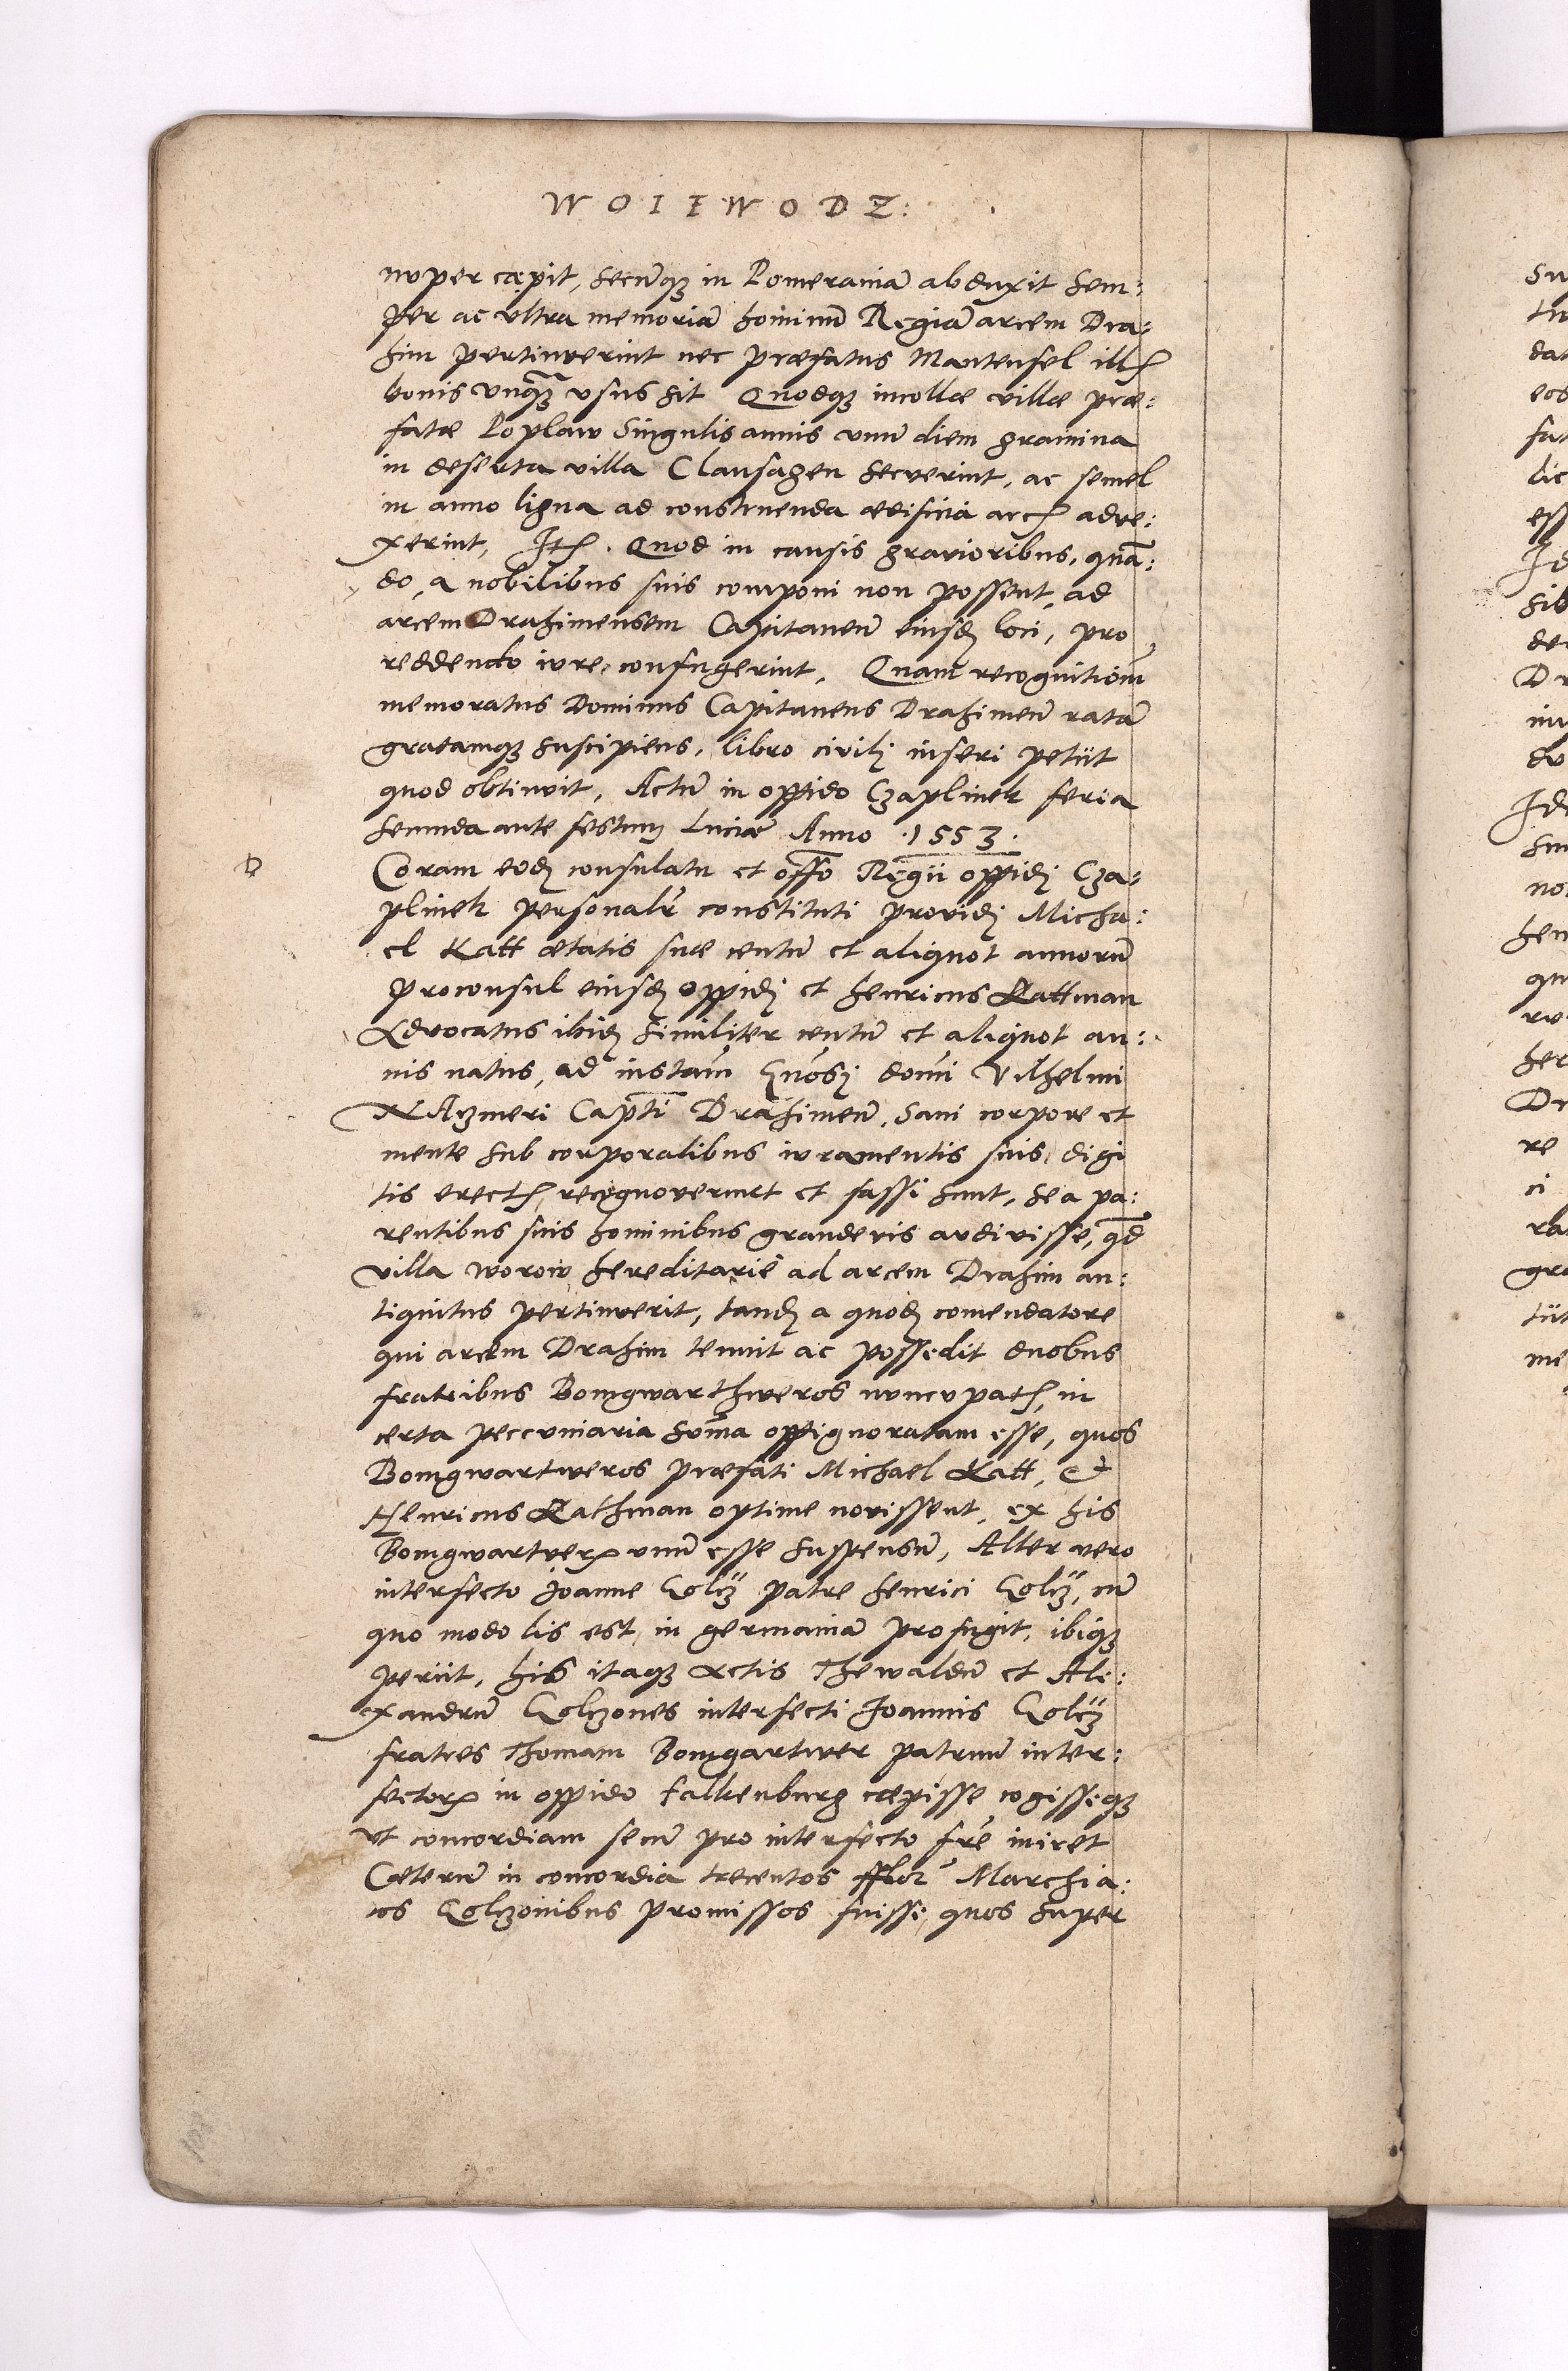 WOIEWODZ:
nuper cæpit, secũqʒ in Pomeraniã abduxit sem:
per ac vltra memoriã hominũ Regiã arcem Dra:
him pertinuerint nec præfatus Manteufel illꝭ
bonis vnq̃ʒ vsus sit Quodqʒ incollæ villæ præ:
fatæ Poplaw Singulis annis vnũ diem gramina
in deserta villa Clausagen secuerint, ac semel
in anno ligna ad construenda ædificia arcꝭ adue:
xerint, Itꝭ. Quod in causis gravioribus, quã:
do, a nobilibus suis componi non possent, ad
arcem Drahimensem Capitaneũ eiusdꝭ loci, pro
reddendo iure, confugerint, Quam recognitionẽ
memoratus Dominus Capitaneus Drahimeñ ratã
gratamqʒ suscipiens, libro civilj inseri petiit
quod obtinuit, Actũ in oppido Czaplinek feria
secunda ante festum Luciæ Anno .1553.
D
Coram eodꝭ consulatu et offo Regii oppidj Cza:
plinek personalr̃ constituti providj Micha:
el Katt ætatis suæ centũ et aliquot annorũ
proconsul eiusdꝭ oppidj et henricus Kattman
Advocatus ibidꝭ similiter centũ et aliquot an:
nis natus, ad instam̃ Gñosj domi Vilhelmi
Nazmeri Capti Drahimeñ, Sani corpore et
mente sub corporalibus iuramentis suis, digi
tis erectꝭ, recognoverunt et fassi sunt, se a pa:
rentibus suis hominibus grandevis audivisse, qd̃
villa worow hereditarie ad arcem Drahim an:
tiquitus pertinuerit, tandꝭ a quodꝭ comendatore
qui arcem Drahim tenuit ac possedit duobus
fratribus Bomgwarthweros nuncupatꝭ, in
certa peccuniaria som̃a oppignoratam esse, quos
Bomgwartweros præfati Michael Katt, et
Henricus Kathman optime novissent, ex his
Bomgwartverꝝ vnũ esse suspensũ, Alter vero
interfecto Joanne Golcz patre henrici Golcz, cũ
quo modo lis est, in germaniã profugit, ibiqʒ
periit, his itaqʒ actis Thewaldũ et Ale:
xandrũ Golczones interfecti Joannis Golcz
fratres Thomam Bomgartwer patruũ inter:
fectorꝝ in oppido falkenburg cæpisse cogisseqʒ
vt concordiam secũ pro interfecto frẽ iniret
Cæterũ in concordia trecentos fflor Marchia:
cos Golczonibus promissos fuisse, quos super